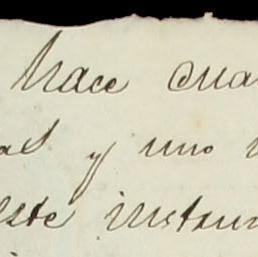 hace cua
as y uno
este instru